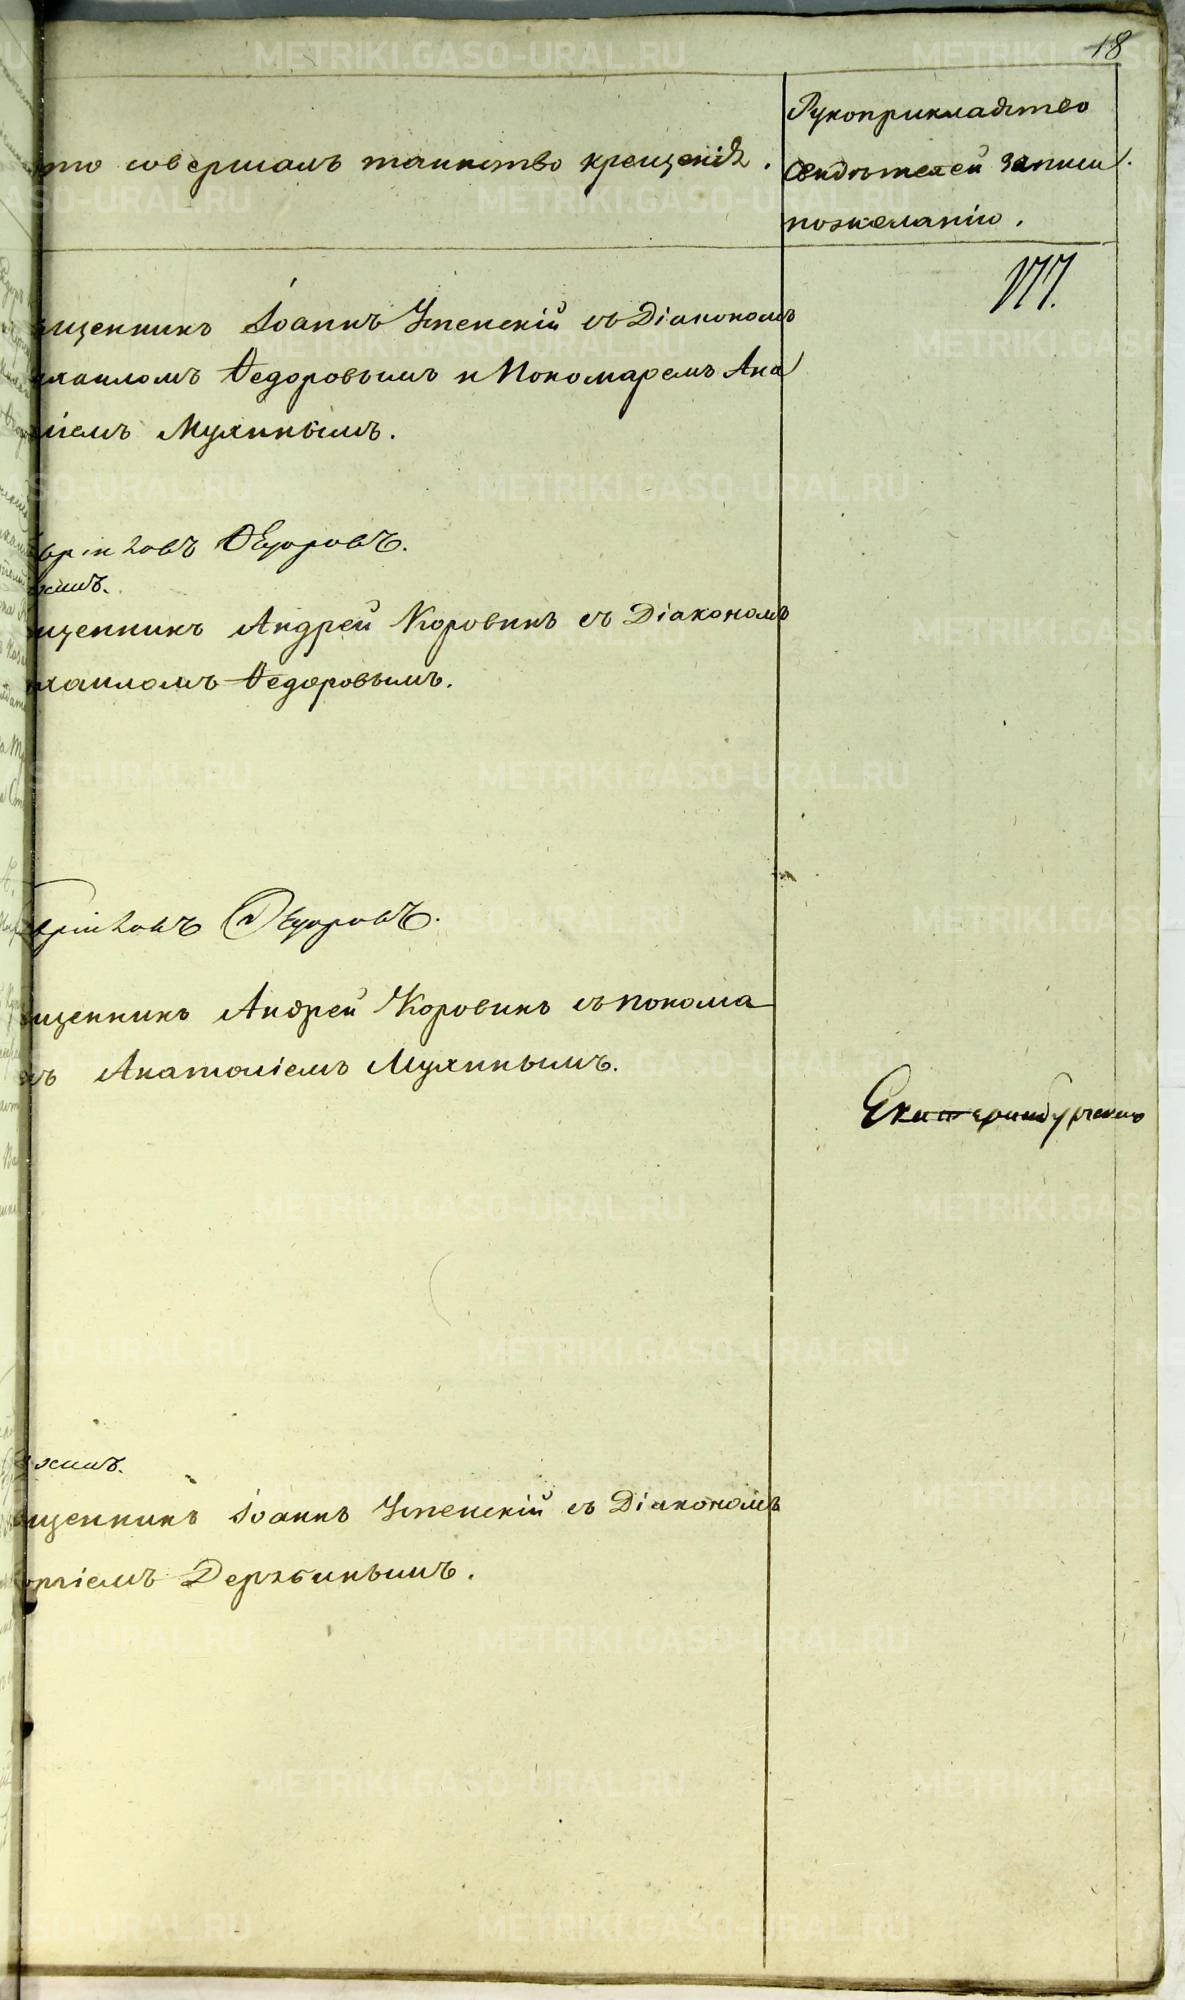 18
то совершалъ таинство крещенія.
Рукоприкладство
свидѣтелей записи
по желанію.
177.
щенникъ Іоаннъ Успенскій съ Діакономъ
хаиломъ Ѳедоровымъ и Пономаремъ Ана
ліемъ Мухинымъ.
Ѳедоровъ.
щенникъ Андрей Коровинъ съ Діакономъ
хаиломъ Ѳедоровымъ.
Ѳедоровъ.
щенникъ Андрей Коровинъ съ понома
ъ Анатоліемъ Мухинымъ.
Екатеринбургской
щенникъ Іоаннъ Успенскій съ Діакономъ
оргіемъ Держбинымъ.
METRIKI.GASO-URAL.RU